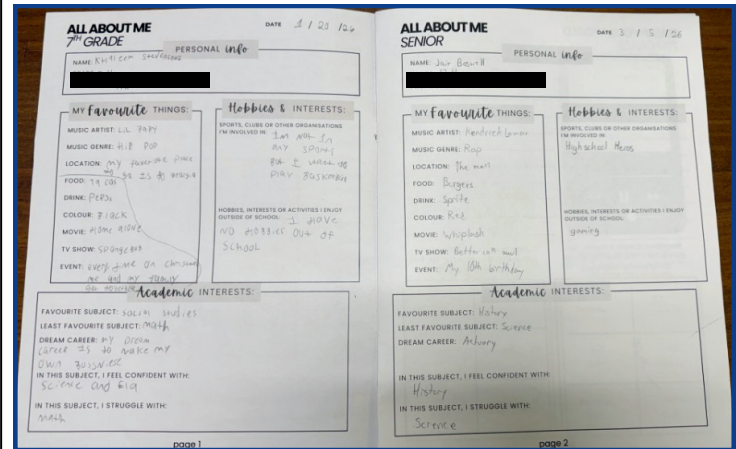 ALL ABOUT ME
7TH GRADE
DATE 1 / 21 / 26
PERSONAL info
NAME:
MY Favourite THINGS:
MUSIC ARTIST: LiL BABY
MUSIC GENRE: HiP POP
LOCATION: my favorite place
to go is to
FOOD: Tacos
DRINK: PePsi
COLOUR: Black
MOVIE: Home alone
TV SHOW: SPongebob
EVENT: every time on Christmas
me and my family
go
Hobbies & INTERESTS:
SPORTS, CLUBS OR OTHER ORGANISATIONS
I'M INVOLVED IN:
I'm not in
any sports
But I want to
Play
HOBBIES, INTERESTS OR ACTIVITIES I ENJOY
OUTSIDE OF SCHOOL:
I Have
NO HOBBIES OUT OF
SCHOOL
Academic INTERESTS:
FAVOURITE SUBJECT: social studies
LEAST FAVOURITE SUBJECT: Math
DREAM CAREER: my Dream
career is to make my
own
IN THIS SUBJECT, I FEEL CONFIDENT WITH:
Science and Ela
IN THIS SUBJECT, I STRUGGLE WITH:
math
page 1
ALL ABOUT ME
SENIOR
DATE 3 / 5 / 26
PERSONAL info
NAME: Boswell
MY Favourite THINGS:
MUSIC ARTIST: Kendrick Lamar
MUSIC GENRE: Rap
LOCATION: The mall
FOOD: Burgers
DRINK: Sprite
COLOUR: Red
MOVIE: Whiplash
TV SHOW: Better call saul
EVENT: My 10th birthday
Hobbies & INTERESTS:
SPORTS, CLUBS OR OTHER ORGANISATIONS
I'M INVOLVED IN:
Highschool Heros
HOBBIES, INTERESTS OR ACTIVITIES I ENJOY
OUTSIDE OF SCHOOL:
gaming
Academic INTERESTS:
FAVOURITE SUBJECT: History
LEAST FAVOURITE SUBJECT: Science
DREAM CAREER: Actuary
IN THIS SUBJECT, I FEEL CONFIDENT WITH:
History
IN THIS SUBJECT, I STRUGGLE WITH:
Science
page 2